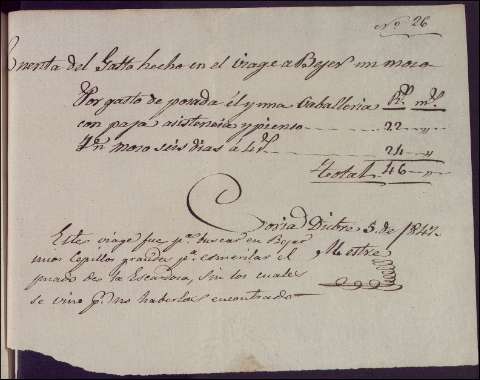 Nº 26
Cuenta del Gasto hecho en el viage a Bejer un mozo
Por gasto de posada él y una Caballeria Rˢ mˢ
con paja asistencia y pienso 22 "
Yn mozo seis dias á 4 rˢ 24 "
Total 46 "
Coria Dicbre 5 de 1847
Este viage fue pª buscar en Bejer
unos Cepillos grandes pª esmerilar el
Mestre
puado de la Escardosa, sin los cuales
se vino pr no haberlos encontrado